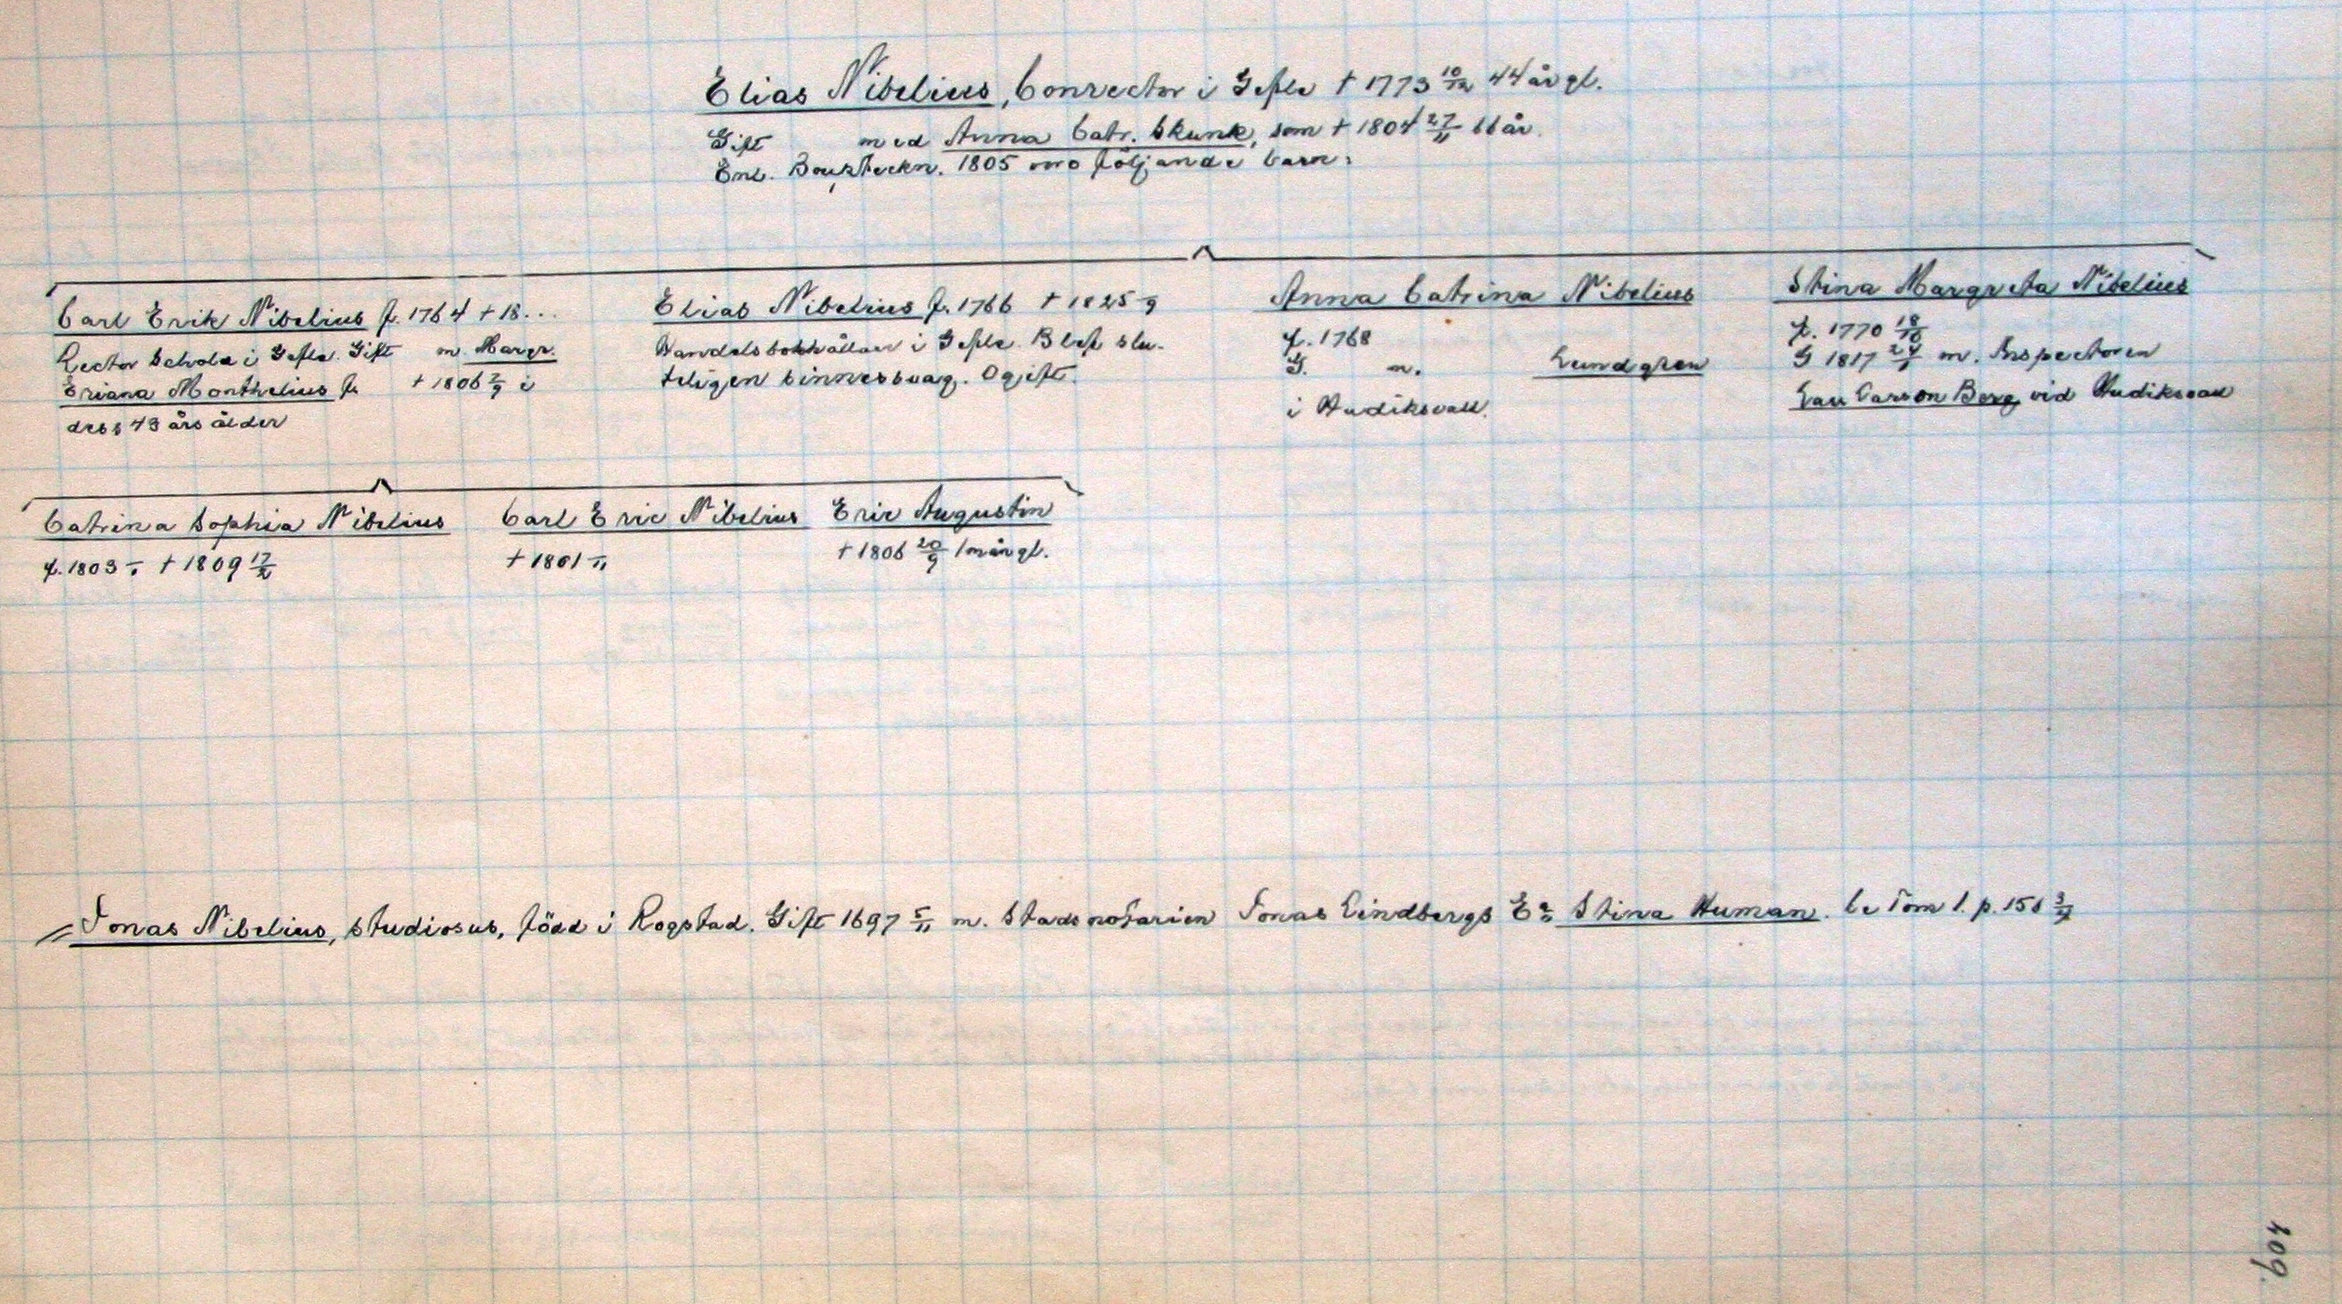 Elias Nibelius, Conrector i Gefle † 1773 10/12 44 år gl.
Gift med Anna Catr. Skunk, som † 1804 27/11 66 år.
Enl. Bouppteckn. 1805 voro följande barn:
Carl Erik Nibelius f. 1764 † 18...
Rector Schola i Gefle. Gift m. Margr.
Eriana Monthelius f. † 1806 2/9 i
dess 43 års ålder
Elias Nibelius f. 1766 † 1825 9
Handelsbokhållare i Gefle. Blef slu-
teligen sinnessvag. Ogift.
Anna Catrina Nibelius
f. 1768
G. m. Lundgren
i Hudiksvall.
Stina Margreta Nibelius
f. 1770 18/10
G 1817 m. Inspectoren
Lars Carson Berg vid Hudiksvall
Catrina Sophia Nibelius
f. 1803 † 1809 17/2
Carl Eric Nibelius
† 1801
Eric Augustin
† 1806 20/9 1 mån gl.
Jonas Nibelius, studiosus, född i Rogstad. Gift 1697 5/11 m. Stadsnotarien Jonas Lindbergs Ea Stina Human. Se Tom 1. p. 156
409.